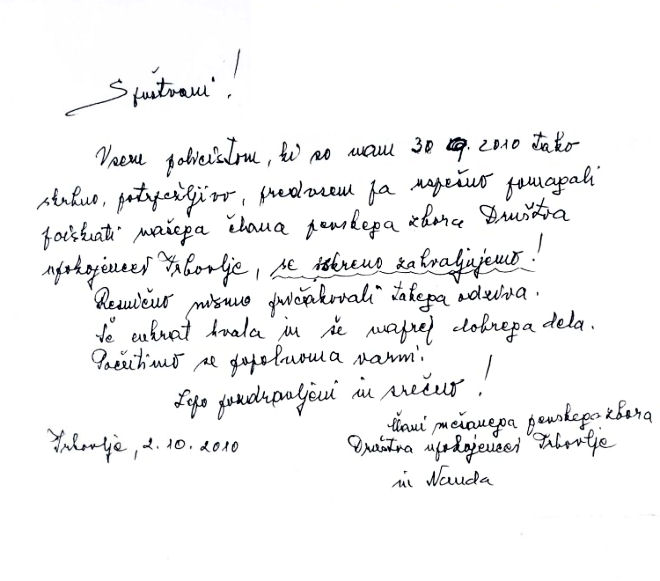 Spoštvani!
Vsem policistom, ki so nam 30 9. 2010 tako
skrbno, potrpežljivo, predvsem pa uspešno pomagali
poiskati našega člana pevskega zbora Društva
upokojencev Trbovlje, se iskreno zahvaljujemo!
Resnično nismo pričakovali takega odziva.
Še enkrat hvala in še naprej dobrega dela.
Počutimo se popolnoma varni.
Lepo pozdravljeni in srečno!
Člani mešanega pevskega zbora
Trbovlje, 2.10.2010
Društva upokojencev Trbovlje
in Nanda